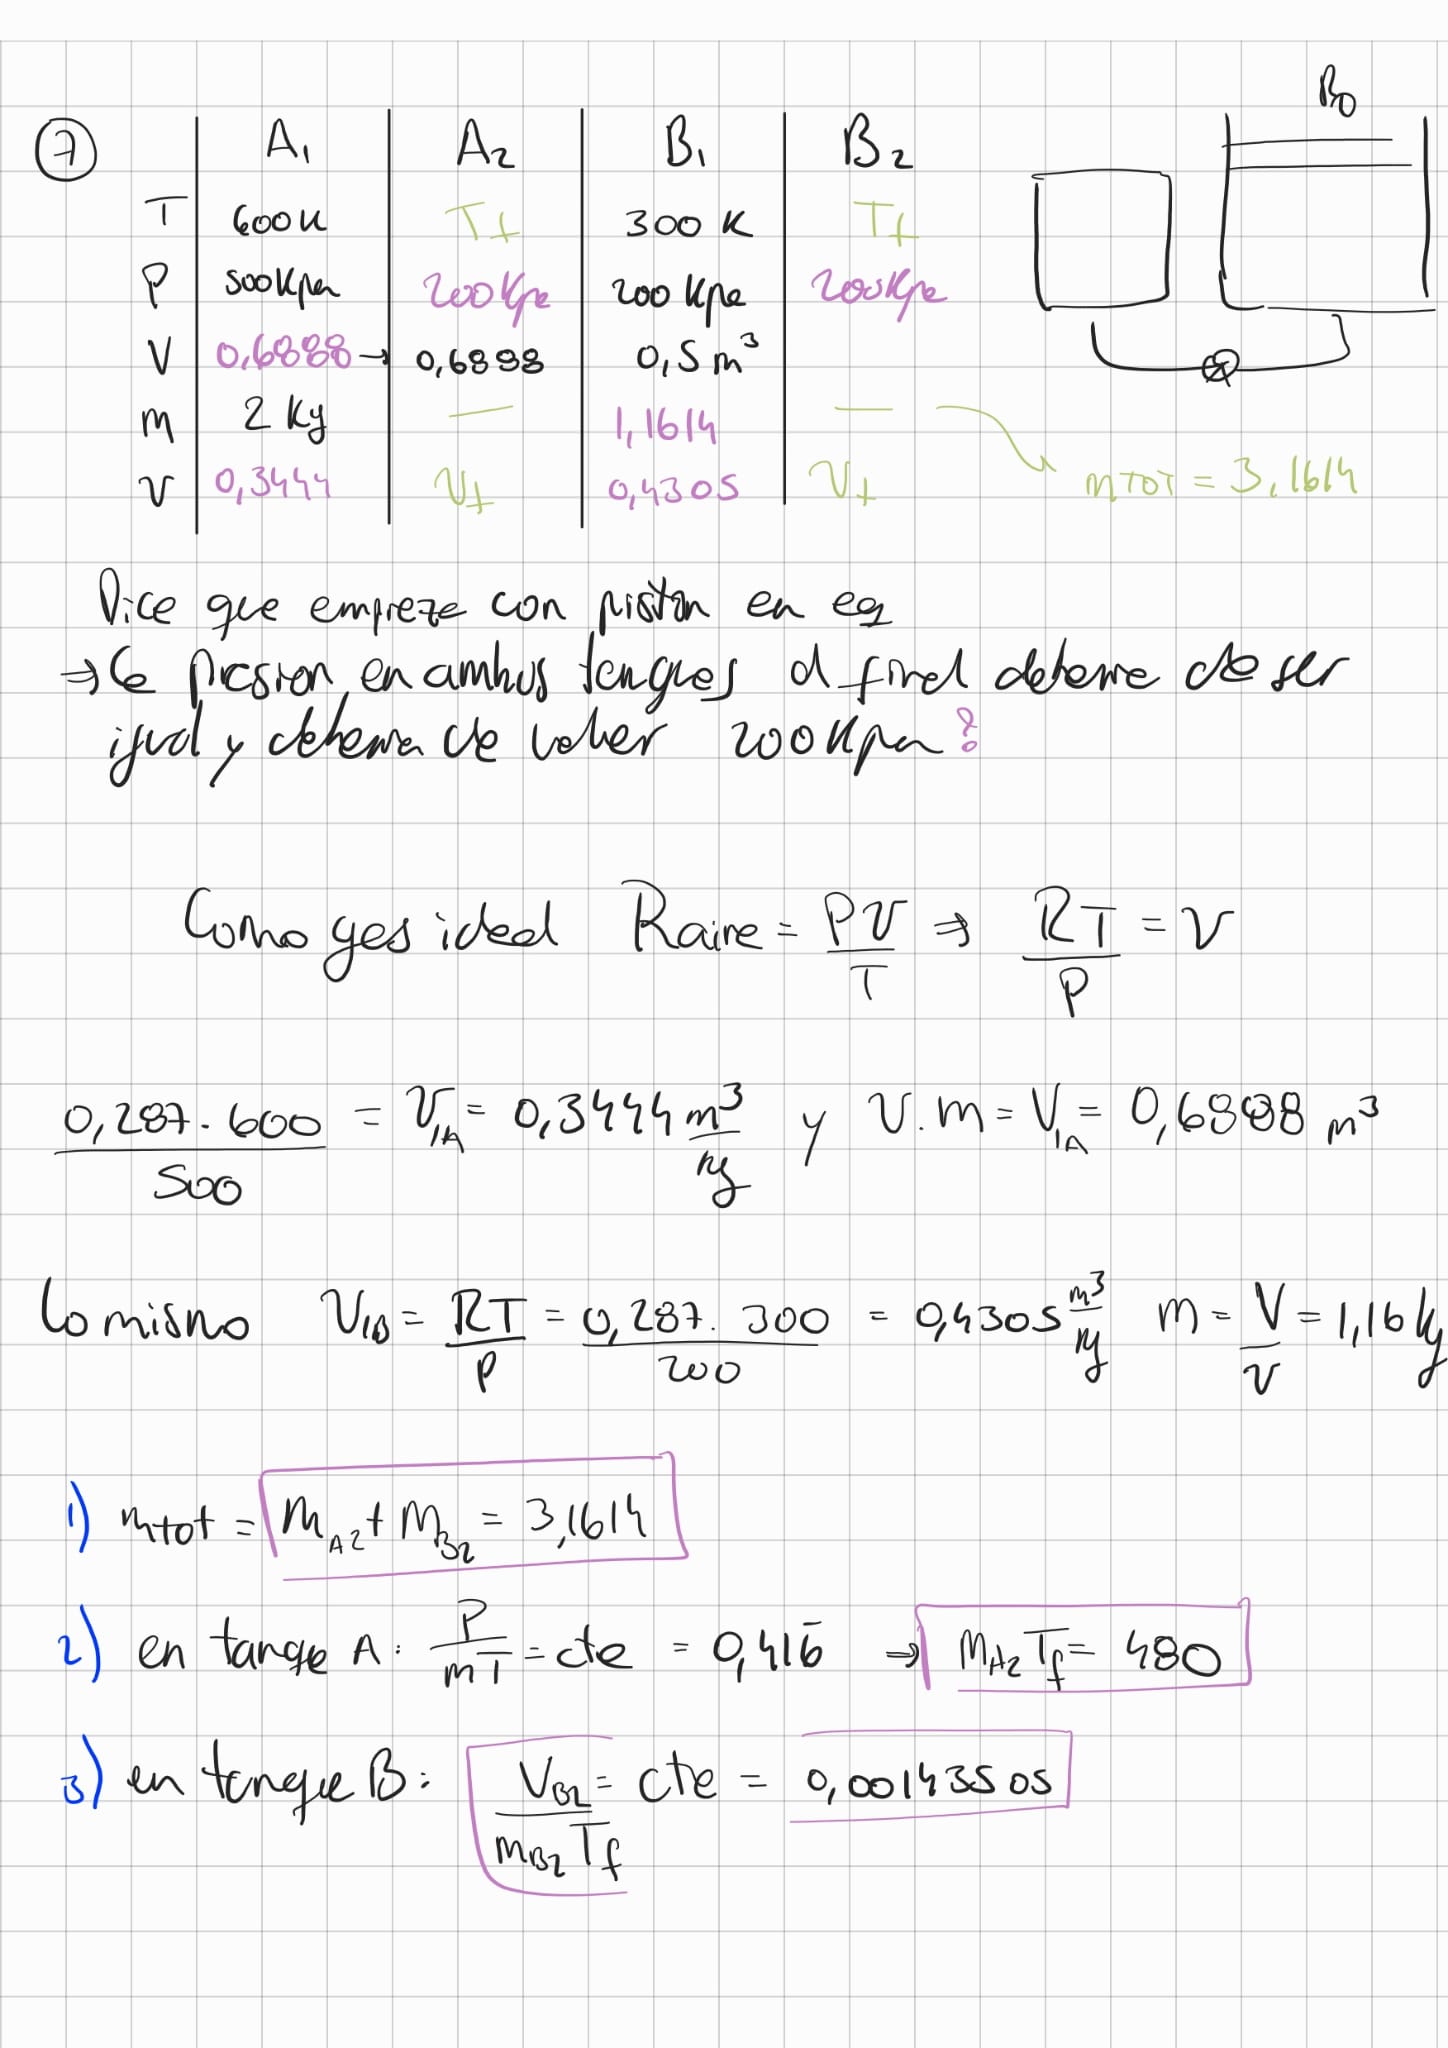 7
A₁ A₂ B₁ B₂ P₀
T 600K Tf 300 K Tf
P 500Kpa 200Kpa 200 Kpa 200Kpa
V 0,6888 → 0,6888 0,5 m³
m 2 Kg — 1,1614 — mTOT = 3,1614
v 0,3444 vf 0,4305 vf
Dice que empieza con piston en eq
⇒ la presion en ambos tanques al final deberia de ser
igual y deberia de valer 200 Kpa?
Como gas ideal Raire = Pv/T ⇒ RT/P = v
0,287 · 600 / 500 = v₁A = 0,3444 m³/kg y v · m = V₁A = 0,6888 m³
Lo mismo v₁B = RT/P = 0,287 · 300 / 200 = 0,4305 m³/kg m = V/v = 1,16 kg
1) mtot = mA2 + mB2 = 3,1614
2) en tanque A: P/mT = cte = 0,416̄ ⇒ mA2 Tf = 480
3) en tanque B: VB2/mB2 Tf = cte = 0,00143505